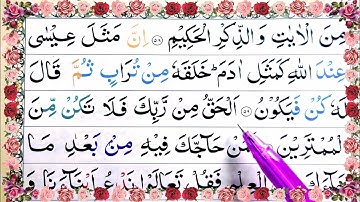 مِنَ الْاٰیٰتِ وَ الذِّكْرِ الْحَكِیْمِ ۝۵۸ اِنَّ مَثَلَ عِیْسٰى
عِنْدَ اللّٰهِ كَمَثَلِ اٰدَمَ ؕ خَلَقَهٗ مِنْ تُرَابٍ ثُمَّ قَالَ
لَهٗ كُنْ فَیَكُوْنُ ۝۵۹ اَلْحَقُّ مِنْ رَّبِّكَ فَلَا تَكُنْ مِّنَ
الْمُمْتَرِیْنَ فَمَنْ حَآجَّكَ فِیْهِ مِنْۢ بَعْدِ مَا
الْعِلْمِ فَقُلْ تَعَالَوْا نَدْعُ اَبْنَآءَنَا وَ